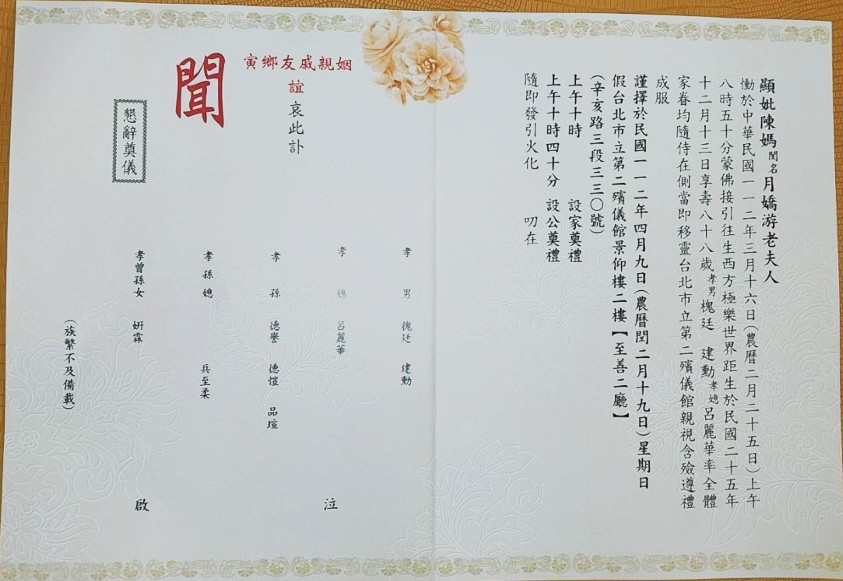 顯妣陳媽閨名月嬌游老夫人
慟於中華民國一一二年三月十六日(農曆二月二十五日)上午
八時五十分蒙佛接引往生西方極樂世界距生於民國二十五年
十二月十三日享壽八十八歲孝男槐廷 建勳孝媳呂麗華率全體
家眷均隨侍在側當即移靈台北市立第二殯儀館親視含殮遵禮
成服
謹擇於民國一一二年四月九日(農曆閏二月十九日)星期日
假台北市立第二殯儀館景仰樓二樓【至善二廳】
(辛亥路三段三三〇號)
上午十時 設家奠禮
上午十時四十分 設公奠禮
隨即發引火化 叨在
姻親戚友鄉寅
誼 哀此訃
聞
懇辭奠儀
孝男 槐廷 建勳
孝媳 呂麗華 泣
孝孫 德譽 德愷 品瑄
孝孫媳 兵至柔
孝曾孫女 妍霖 啟
(族繁不及備載)